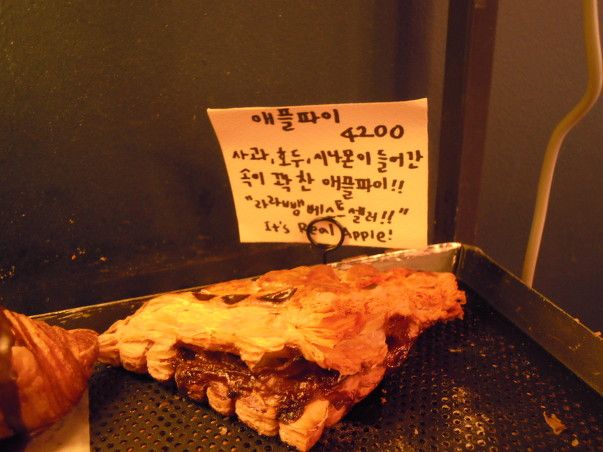 애플파이
4200
사과, 호두, 시나몬이 들어간
속이 꽉 찬 애플파이!!
"라라빵 베스트셀러!!"
It's Real Apple!